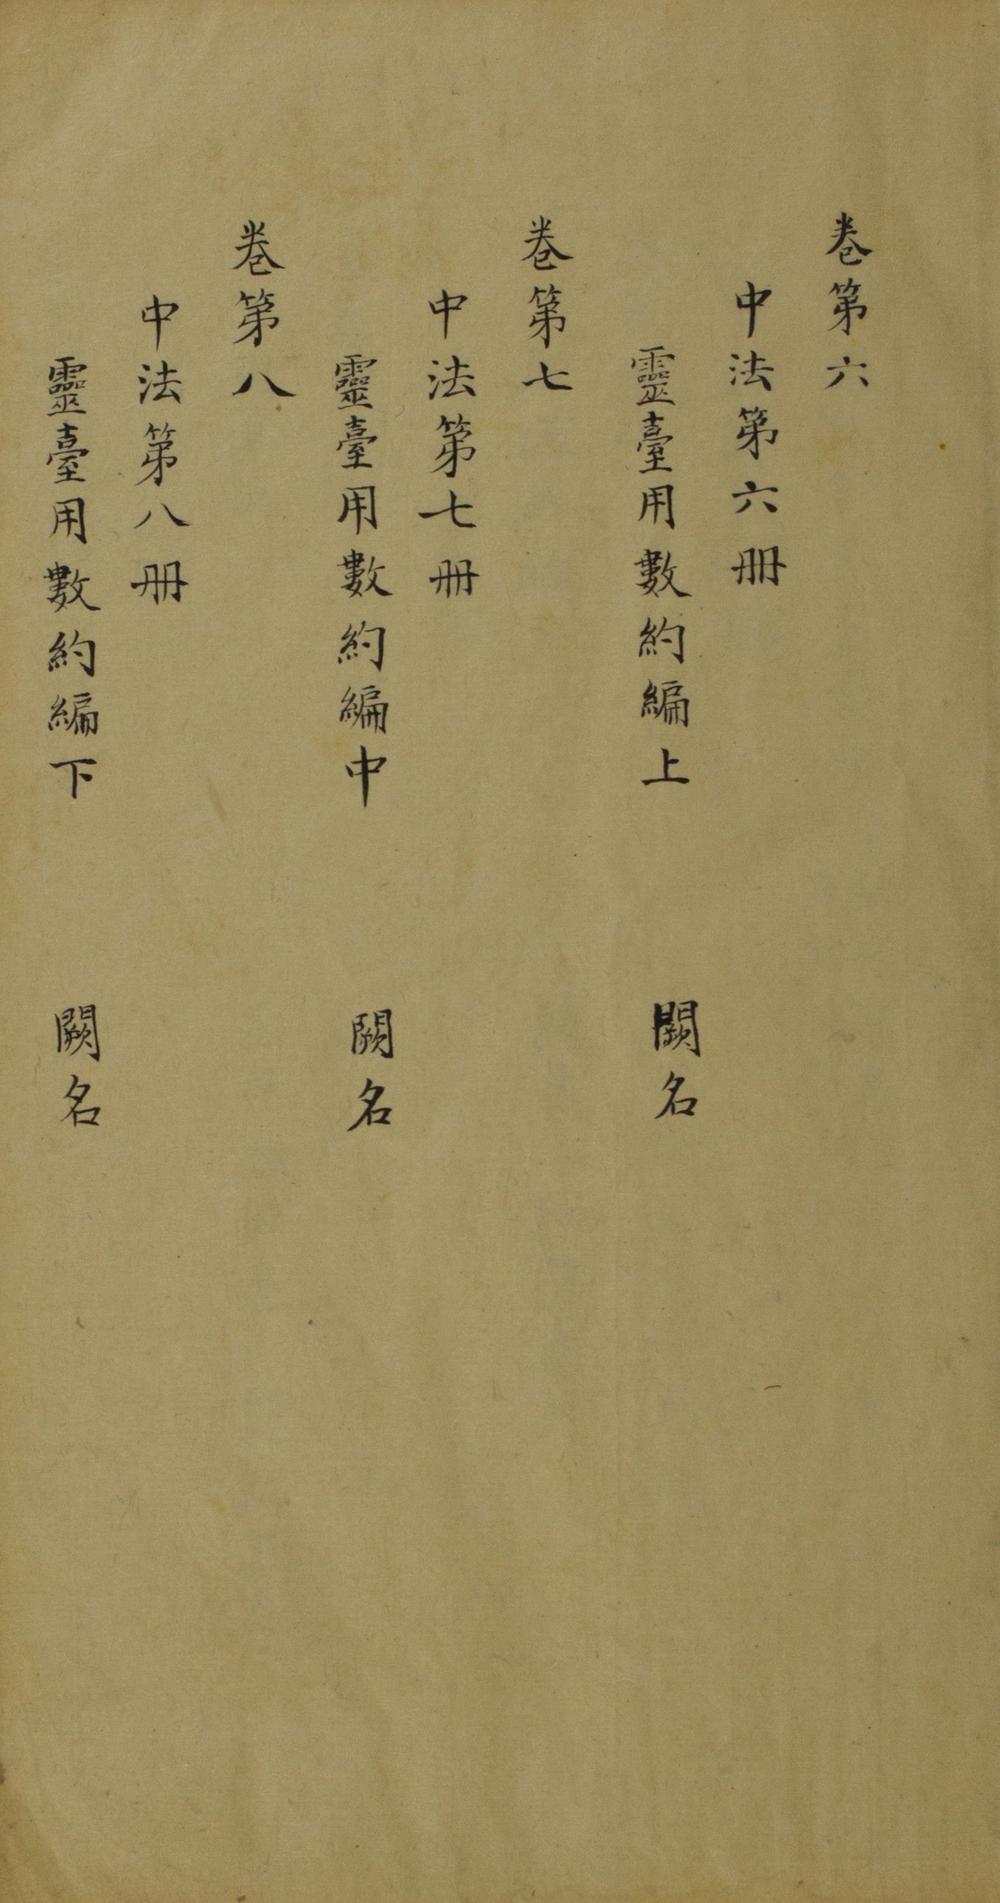 卷第六
中法第六冊
靈臺用數約編上　闕名
卷第七
中法第七冊
靈臺用數約編中　闕名
卷第八
中法第八冊
靈臺用數約編下　闕名